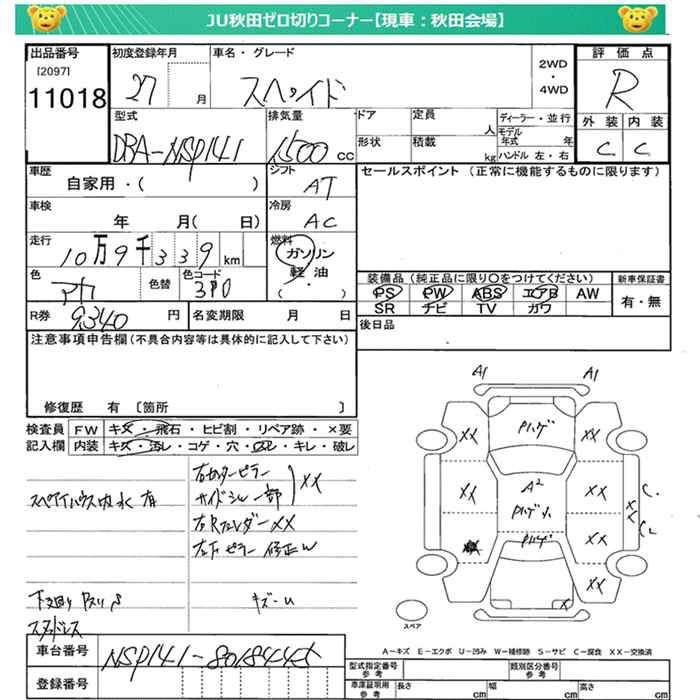 JU秋田ゼロ切りコーナー【現車：秋田会場】
出品番号 初度登録年月 車名・グレード 2WD・4WD 評価点
[2097]
11018 27 月 スペイド R
型式 排気量 ドア 定員 人 ディーラー・並行 外装 内装
DBA-NSP141 1500 cc 形状 積載 kg モデル年式 年 ハンドル 左・右 C C
車歴 シフト セールスポイント（正常に機能するものに限ります）
自家用・( ) AT
車検 冷房
年 月( 日) AC
走行 燃料
10万9千339km ガソリン
軽油
( ・ )
色 色替 色コード 装備品（純品に限り〇をつけてください） 新車保証書
アカ 3P0 PS PW ABS エアB AW 有・無
SR ナビ TV カワ
R券 9340 円 名変期限 月 日 後日品
注意事項申告欄（不具合内容等は具体的に記入して下さい）
修復歴 有 〔箇所 〕
検査員 FW キズ・飛石・ヒビ割・リペア跡・×要
記入欄 内装 キズ・汚レ・コゲ・穴・凹レ・キレ・破レ
A1 A1
Pハゲ
XX XX
XX A2 XX
Pハゲ
XX
Pハゲ
XX
X
スペア
右センターピラー
サイドシル一部 XX
スペアハウス内 水 有
右Rフェンダー XX
左Fピラー 修正W
下廻り Pスリ S キズ-U
スタッドレス
A-キズ E-エクボ U-凹み W-補修跡 S-サビ C-腐食 XX-交換済
車台番号 NSP141-8018445
登録番号
型式指定番号 参考 類別区分番号 参考
車庫証明用 参考 長さ cm 幅 cm 高さ cm